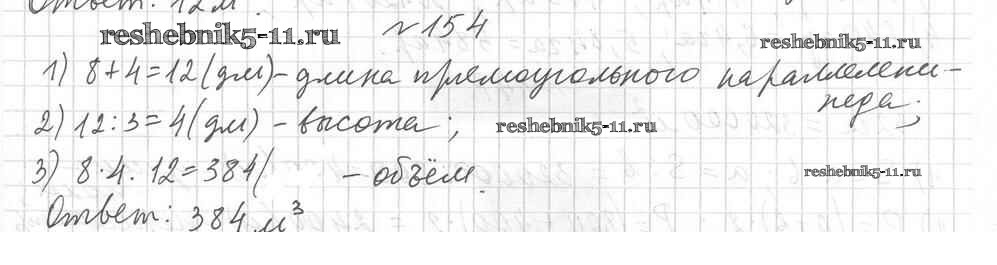 Ответ: 12м.
№154
reshebnik5-11.ru
reshebnik5-11.ru
1) 8+4=12(дм)-длина прямоугольного параллелепи-
педа;
2) 12:3=4(дм) - высота;
reshebnik5-11.ru
3) 8·4·12=384( - объём.
reshebnik5-11.ru
Ответ: 384 м³